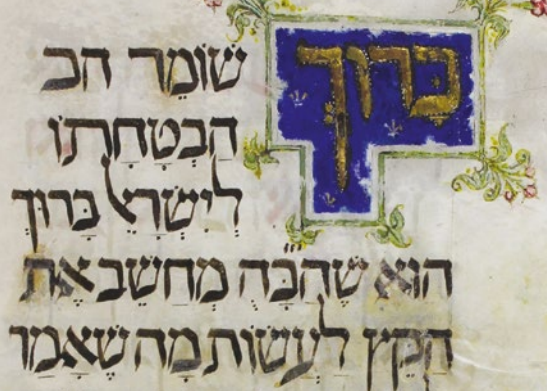 בָּרוּךְ שׁוֹמֵר הב
הַבְטָחָתוֹ
לְיִשְׂרָאֵל בָּרוּךְ
הוּא שֶׁהַבָּ״ה מְחַשֵׁב אֶת
הַקֵץ לַעֲשׂוֹת מַה שֶׁאָמַר